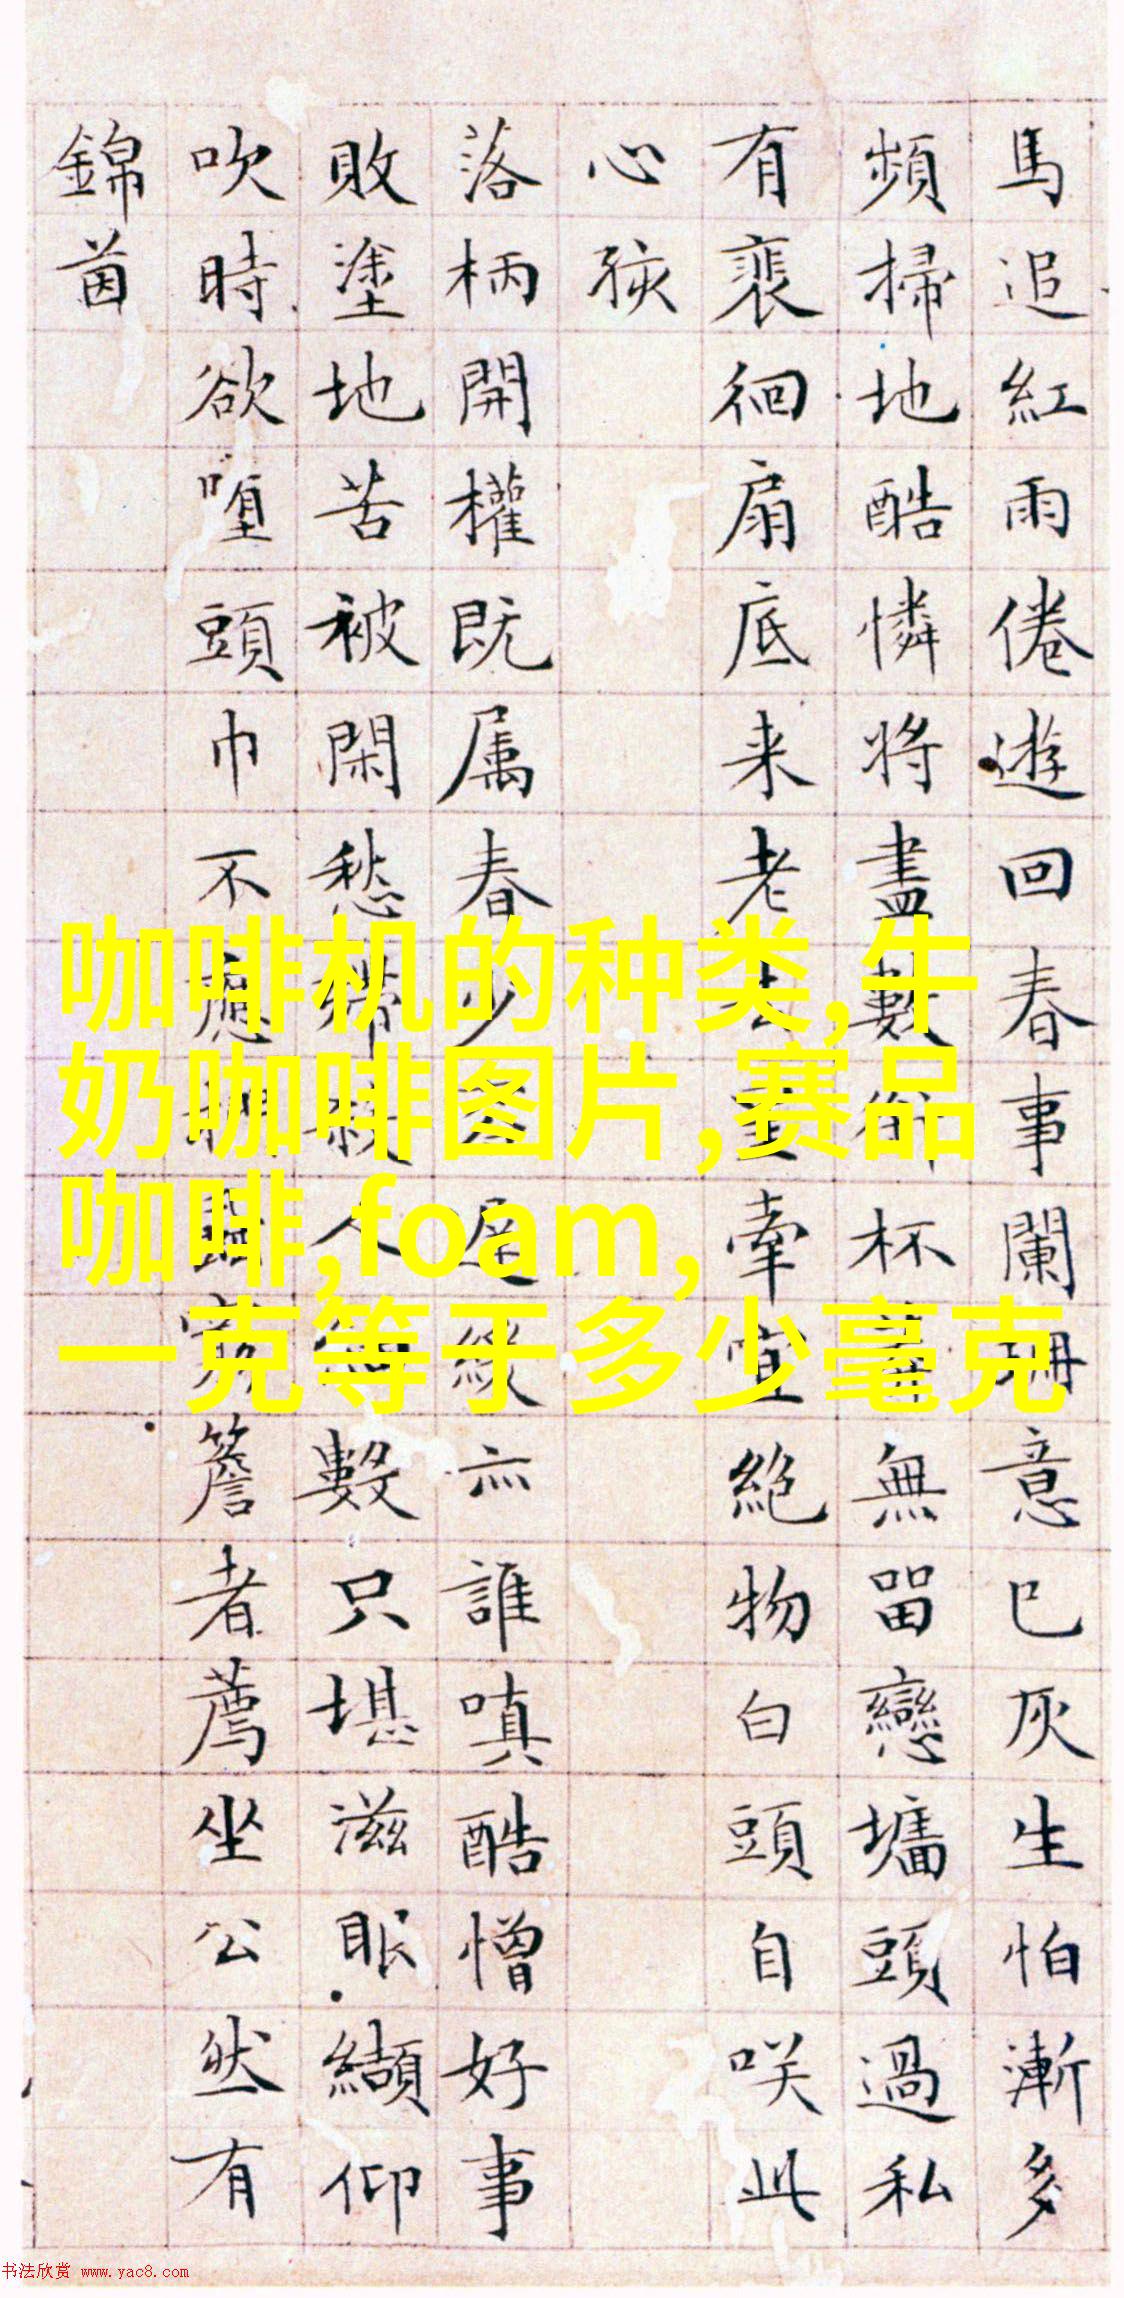 馬追紅雨倦遊回春事闌珊意已灰生怕漸多
頻掃地酷憐將盡數銜杯無留戀墻頭過私
有裵徊扇底来老去牽宣絶物白頭自咲此
心孩
落柄開權既属春少遲緩亦誰嗔酷憎好事
敗塗地苦被閑愁人無數只堪滋眠纈仰
吹時欲頭巾不應簷者薦坐公然有
錦茵
咖啡机的种类,牛
奶咖啡图片,赛品
咖啡,foam,
一克等于多少毫克
书法欣赏 www.yac8.com